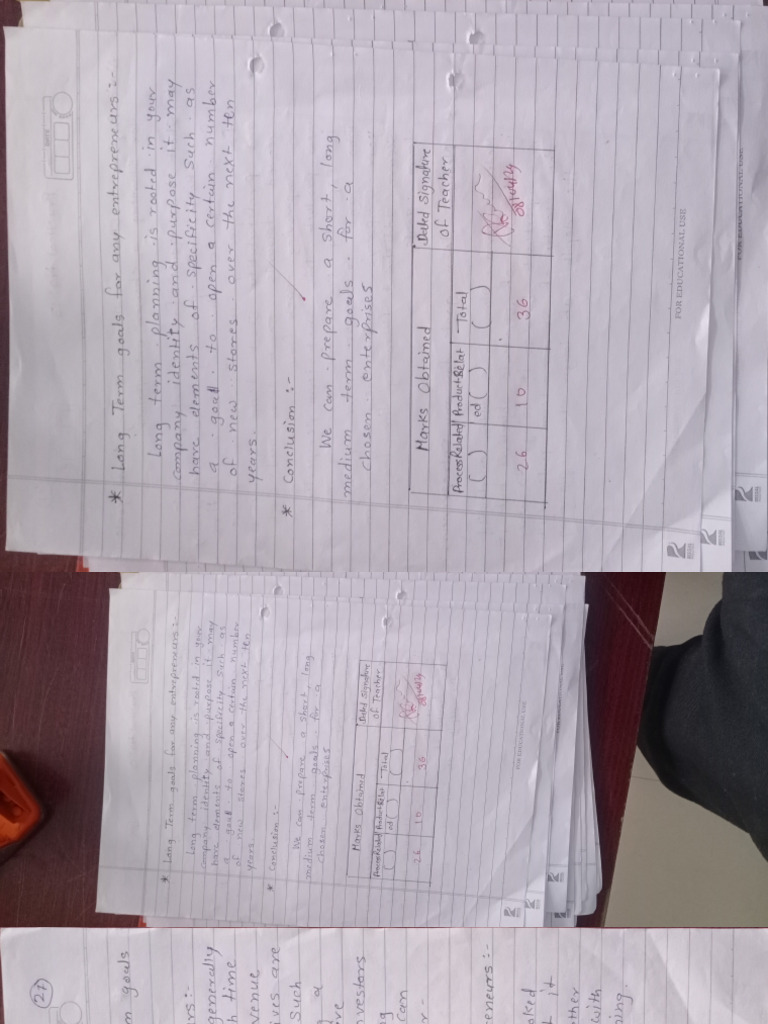 * Long Term goals for any entrepreneurs :-
Long term planning is rooted in your
company identity and purpose it may
have elements of specificity such as
a goal to open a certain number
of new stores over the next ten
years.
* Conclusion :-
We can prepare a short, long
medium term goals for a
chosen enterprises
Marks Obtained
Dated Signature
of Teacher
Process Related
( )
Product Relat
ed ( )
Total
( )
26
10
36
08/04/24
FOR EDUCATIONAL USE
FOR EDUCATIONAL USE
* Long Term goals for any entrepreneurs :-
Long term planning is rooted in your
company identity and purpose it may
have elements of specificity such as
a goal to open a certain number
of new stores over the next ten
years
* Conclusion :-
We can prepare a short, long
medium term goals for a
chosen enterprises
Marks Obtained
Dated Signature
of Teacher
Process Related
( )
Product Relat
ed ( )
Total
( )
26
10
36
08/04/24
FOR EDUCATIONAL USE
27
m goals
rs :-
generally
h time
venue
ives are
Such
g a
re
nvestors
ng
can
r -
eneurs :-
oked
t it
ther
with
ning.